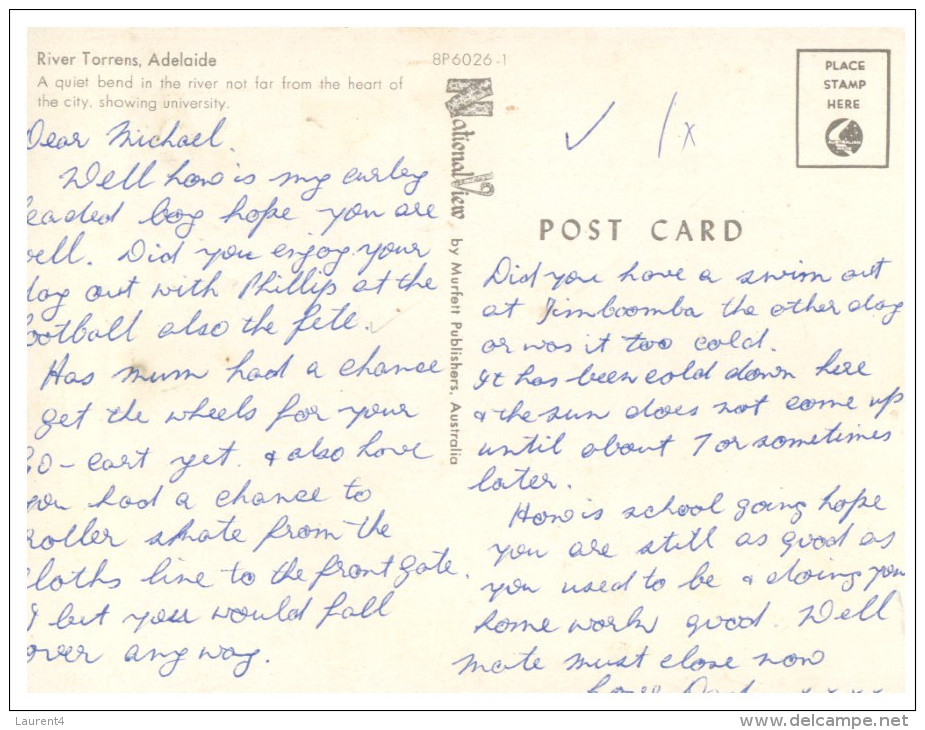 River Torrens, Adelaide
A quiet bend in the river not far from the heart of
the city, showing university.
8P6026-1
National View
by Murfett Publishers, Australia
PLACE
STAMP
HERE
POST CARD
Dear Michael.
Well how is my curley
eaded boy hope you are
well. Did you enjoy your
day out with Phillip at the
football also the fete.
Has mum had a chance
get the wheels for your
GO-cart yet. & also have
you had a chance to
roller skate from the
cloths line to the front gate.
I bet you would fall
over any way.
Did you have a swim out
at Jimboomba the other day
or was it too cold.
It has been cold down here
& the sun does not come up
until about 7 or sometimes
later.
How is school going hope
you are still as good as
you used to be & doing you
home work good. Well
mate must close now
Love Dad x x x x
Laurent4
www.delcampe.net